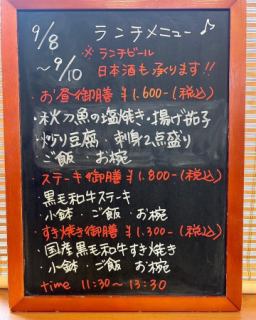 9/8
～9/10
ランチメニュー♪
※ランチビール
日本酒も承ります!!
お昼御膳 ¥1.600-(税込)
・秋刀魚の塩焼き・揚げ茄子
・炒り豆腐、刺身2点盛り
ご飯・お椀
ステーキ御膳 ¥1.800-(税込)
・黒毛和牛ステーキ
・小鉢・ご飯 お椀
すき焼き御膳 ¥1.300-(税込)
・国産黒毛和牛すき焼き
・小鉢・ご飯 お椀
time 11:30～13:30